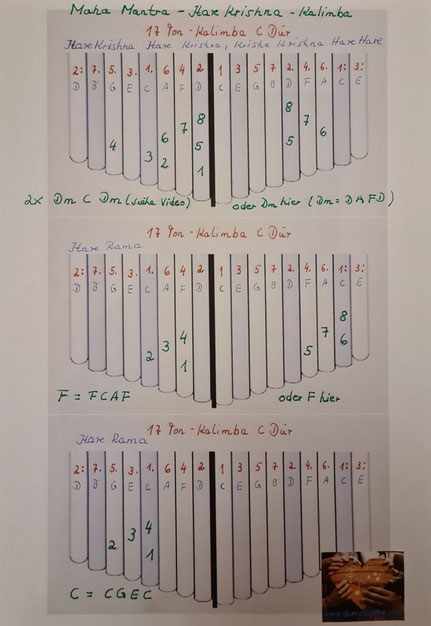 Maha Mantra - Hare Krishna - Kalimba
17 Ton - Kalimba C Dur
Hare Krishna Hare Krishna, Krishna Krishna Hare Hare
2: 7. 5. 3. 1. 6 4 2 1 3 5 7 2. 4. 6. 1: 3:
D B G E C A F D C E G B D F A C E
8
8
7
7
6
6
4
5
5
3
2
1
2x Dm C Dm (siehe Video) oder Dm hier (Dm = DAFD)
17 Ton - Kalimba C Dur
Hare Rama
2: 7. 5. 3. 1. 6 4 2 1 3 5 7 2. 4. 6. 1: 3:
D B G E C A F D C E G B D F A C E
8
7
6
4
3
5
2
1
F = FCAF oder F hier
17 Ton - Kalimba C Dur
Hare Rama
2: 7. 5. 3. 1. 6 4 2 1 3 5 7 2. 4. 6. 1: 3:
D B G E C A F D C E G B D F A C E
4
3
2
1
C = CGEC